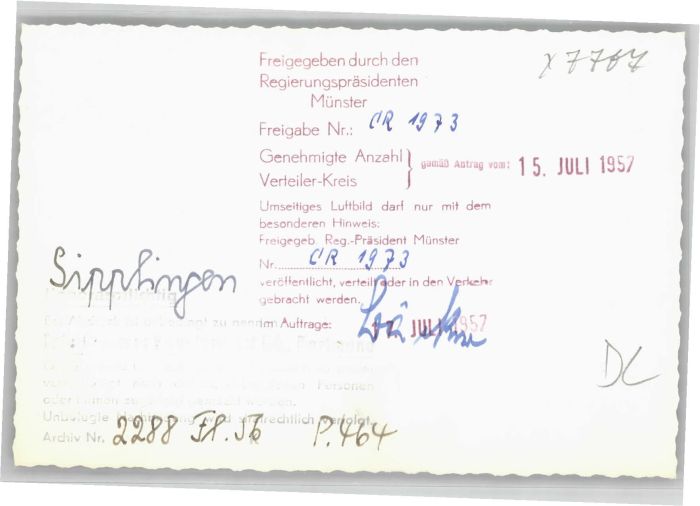 Freigegeben durch den
x 7767
Regierungspräsidenten
Münster
Freigabe Nr.: CR 1973
Genehmigte Anzahl
Verteiler-Kreis
gemäß Antrag vom: 15. JULI 1957
Umseitiges Luftbild darf nur mit dem
besonderen Hinweis:
Freigegeb. Reg.-Präsident Münster
Nr. CR 1973
Sipplingen
veröffentlicht, verteilt oder in den Verkehr
gebracht werden.
im Auftrage: JULI 1957
DC
Personen
Unbefugte wird strafrechtlich verfolgt.
Archiv Nr. 2288 P.464